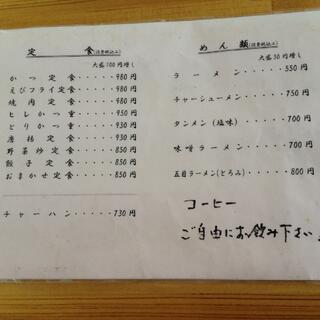 定 食(消費税込み)
大盛100円増し
かつ定食・・・・・980円
えびフライ定食・・・・・980円
焼肉定食・・・・・980円
ヒレかつ重・・・・・950円
とりかつ重・・・・・930円
唐揚定食・・・・・930円
野菜炒定食・・・・・850円
餃子定食・・・・・850円
おまかせ定食・・・・・850円
チャーハン・・・・・730円
めん類(消費税込み)
大盛50円増し
ラーメン・・・・・550円
チャーシューメン・・・・・750円
タンメン(塩味)・・・・・700円
味噌ラーメン・・・・・700円
五目ラーメン(とろみ)・・・・・800円
コーヒー
ご自由にお飲み下さい。